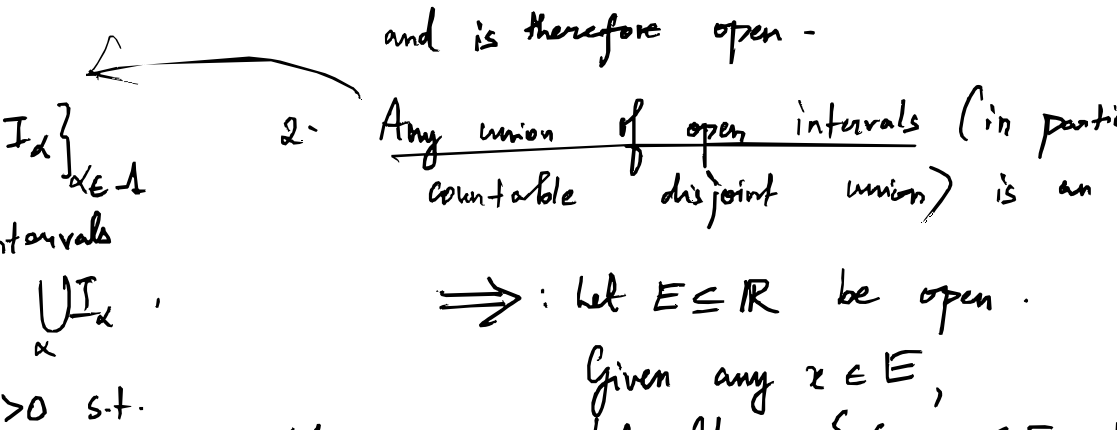 and is therefore open -
I_α}_{α∈Λ}
2. Any union of open intervals (in parti
countable disjoint union) is an
ntervals
⋃_α I_α .
⟹ : Let E ⊆ ℝ be open .
Given any x ∈ E ,
>0 s.t.